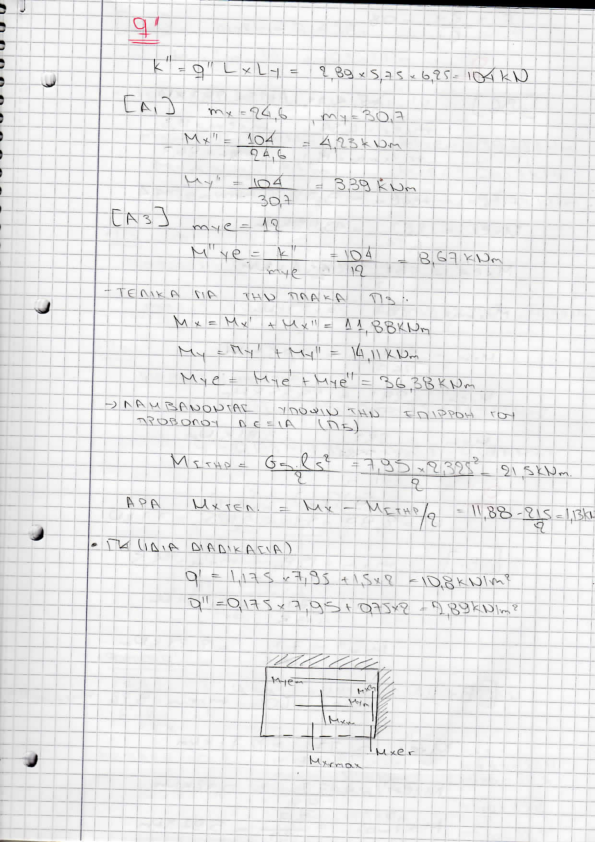 q'
K'' = q'' Lx Ly = 2,89 x 5,75 x 6,25 = 104 kN
[A1] mx = 24,6 , my = 30,7
Mx'' = 104/24,6 = 4,23 kNm
My'' = 104/30,7 = 3,39 kNm
[A3] mye = 12
M''ye = K''/mye = 104/12 = 8,67 kNm
- ΤΕΛΙΚΑ ΓΙΑ ΤΗΝ ΠΛΑΚΑ Π3:
Mx = Mx' + Mx'' = 11,88 kNm
My = My' + My'' = 14,11 kNm
Mye = Mye' + Mye'' = 36,38 kNm
→ ΛΑΜΒΑΝΟΝΤΑΣ ΥΠΟΨΙΝ ΤΗΝ ΕΠΙΡΡΟΗ ΤΟΥ
ΠΡΟΒΟΛΟΥ ΔΕΞΙΑ (Π5)
MΣΤΗΡ = G5.l5²/2 = 7,95 x 2,325²/2 = 21,5 kNm
ΑΡΑ Mxτελ. = Mx - MΣΤΗΡ/2 = 11,88 - 21,5/2 = 1,13 k
• Π4 (ΙΔΙΑ ΔΙΑΔΙΚΑΣΙΑ)
q' = 1,175 x 7,95 + 1,5 x 2 = 10,8 kN/m²
q'' = 0,175 x 7,95 + 0,75 x 2 = 2,89 kN/m²
Mye
Mym
Mxm
Mxer
Mxrmax